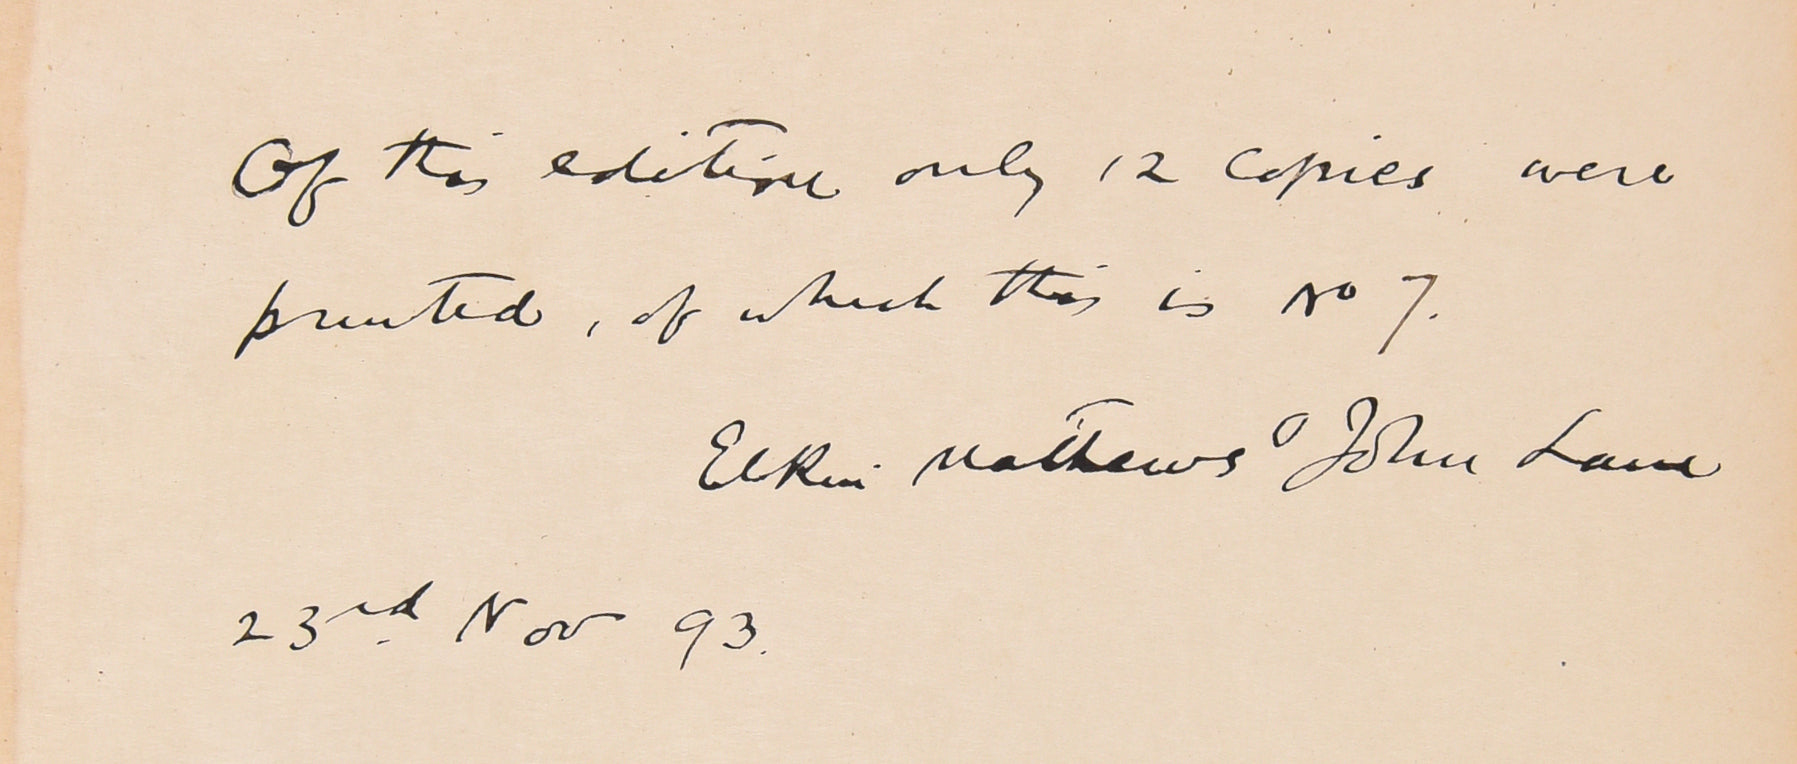 Of this edition only 12 copies were
printed, of which this is No 7.
Elkin Mathews & John Lane
23rd Nov 93.